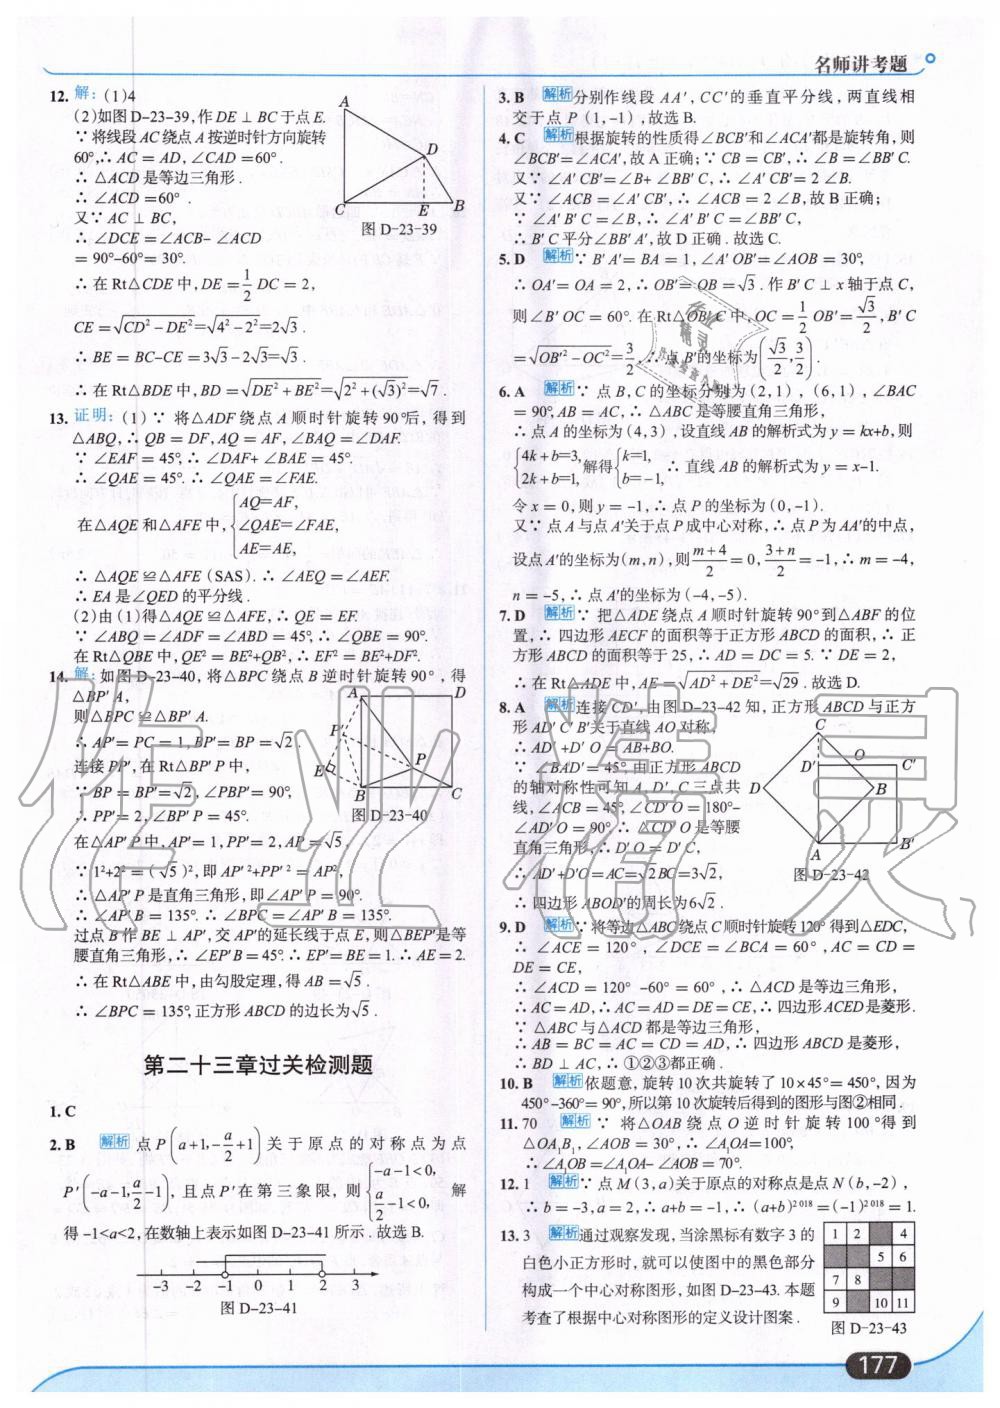 名师讲考题
12. 解: (1)4
(2)如图 D-23-39,作 DE ⊥ BC于点 E.
∵ 将线段 AC 绕点 A 按逆时针方向旋转
60°,∴ AC = AD, ∠CAD =60° .
∴ △ACD 是等边三角形 .
∴ ∠ACD =60° .
又∵ AC ⊥ BC,
∴ ∠DCE = ∠ACB- ∠ACD
= 90°-60°= 30°.
∴ 在 Rt△CDE 中, DE = 1/2 DC = 2,
CE =√(CD²-DE²)=√(4²-2²)=2√3 .
∴ BE = BC-CE =3√3-2√3=√3.
∴ 在 Rt△BDE 中, BD =√(DE²+BE²)=√(2²+(√3)²)=√7 .
A
D
C E B
图 D-23-39
13. 证明: (1) ∵ 将△ADF 绕点 A 顺时针旋转 90°后, 得到
△ABQ, ∴ QB = DF, AQ = AF, ∠BAQ =∠DAF.
∵ ∠EAF = 45°, ∴ ∠DAF+ ∠BAE = 45°.
∴ ∠QAE = 45°. ∴ ∠QAE = ∠FAE.
在△AQE 和△AFE 中, {AQ=AF, ∠QAE=∠FAE, AE=AE,
∴ △AQE ≌△AFE (SAS). ∴ ∠AEQ = ∠AEF.
∴ EA 是∠QED 的平分线 .
(2)由(1)得△AQE ≌△AFE, ∴ QE = EF.
∵ ∠ABQ = ∠ADF = ∠ABD = 45°, ∴ ∠QBE = 90°.
在 Rt△QBE 中, QE² = BE²+QB², ∴ EF² = BE²+DF².
14. 解: 如图 D-23-40, 将△BPC 绕点 B 逆时针旋转 90° , 得
△BP′ A,
则△BPC ≌△BP′ A.
∴ AP′= PC = 1, BP′= BP =√2 .
连接 PP′, 在 Rt△BP′ P 中,
∵ BP = BP′=√2, ∠PBP′= 90°,
∴ PP′= 2, ∠BP′ P = 45°.
在△AP′ P 中, AP′= 1, PP′= 2, AP =√5,
∵ 1²+2² = (√5)², 即 AP′²+PP′² = AP²,
∴ △AP′ P 是直角三角形, 即∠AP′ P = 90°.
∴ ∠AP′ B = 135°. ∴ ∠BPC = ∠AP′ B = 135°.
过点 B 作 BE ⊥ AP′, 交 AP′的延长线于点 E, 则△BEP′是等
腰直角三角形, ∴ ∠EP′ B = 45°. ∴ EP′= BE = 1. ∴ AE = 2.
∴ 在 Rt△ABE 中, 由勾股定理, 得 AB =√5 .
∴ ∠BPC = 135°, 正方形 ABCD 的边长为√5 .
A D
P′
E P
B C
图 D-23-40
第二十三章过关检测题
1. C
2. B 解析 点 P(a+1,-a/2+1) 关于原点的对称点为点
P′(-a-1,a/2-1), 且点 P′在第三象限, 则 {-a-1<0, a/2-1<0, 解
得 -1<a<2, 在数轴上表示如图 D-23-41 所示 . 故选 B.
-3 -2 -1 0 1 2 3
图 D-23-41
3. B 解析 分别作线段 AA′, CC′的垂直平分线, 两直线相
交于点 P (1,-1) , 故选 B.
4. C 解析 根据旋转的性质得∠BCB′和∠ACA′都是旋转角, 则
∠BCB′= ∠ACA′, 故 A 正确; ∵ CB = CB′, ∴ ∠B = ∠BB′ C.
又∵ ∠A′ CB′= ∠B+ ∠BB′ C, ∴ ∠A′ CB′= 2 ∠B.
又∵ ∠ACB = ∠A′ CB′, ∴ ∠ACB = 2 ∠B, 故 B 正确;
∵ ∠A′ B′ C = ∠B, ∴ ∠A′ B′ C = ∠BB′ C,
∴ B′ C 平分∠BB′ A′, 故 D 正确 . 故选 C.
5. D 解析 ∵ B′ A′= BA = 1, ∠A′ OB′= ∠AOB = 30°,
∴ OA′= OA = 2, ∴ OB′= OB =√3 . 作 B′ C ⊥ x 轴于点 C,
则∠B′ OC = 60°. 在 Rt△OB′ C 中, OC = 1/2 OB′= √3/2, B′ C
=√(OB′²-OC²)= 3/2, ∴ 点 B′的坐标为(√3/2, 3/2) .
6. A 解析 ∵ 点 B, C 的坐标分别为 (2,1) , (6,1) , ∠BAC
= 90°, AB = AC, ∴ △ABC 是等腰直角三角形,
∴ 点 A 的坐标为 (4,3) , 设直线 AB 的解析式为 y = kx+b, 则
{4k+b=3, 2k+b=1, 解得 {k=1, b=-1, ∴ 直线 AB 的解析式为 y = x-1.
令 x = 0, 则 y = -1, ∴ 点 P 的坐标为 (0,-1).
又∵ 点 A 与点 A′关于点 P 成中心对称, ∴ 点 P 为 AA′的中点,
设点 A′的坐标为 (m,n) , 则 (m+4)/2 = 0, (3+n)/2 = -1, ∴ m = -4,
n = -5, ∴ 点 A′的坐标为 (-4,-5).
7. D 解析 ∵ 把△ADE 绕点 A 顺时针旋转 90°到△ABF 的位
置, ∴ 四边形 AECF 的面积等于正方形 ABCD 的面积, ∴ 正
方形 ABCD 的面积等于 25, ∴ AD = DC = 5. ∵ DE = 2,
∴ 在 Rt△ADE 中, AE =√(AD²+DE²)=√29 . 故选 D.
8. A 解析 连接 CD′, 由图 D-23-42 知, 正方形 ABCD 与正方
形 AD′ C′ B′关于直线 AO 对称,
∴ AD′ +D′ O = AB+BO.
∵ ∠BAD′= 45°, 由正方形 ABCD
的轴对称性可知 A, D′, C 三点共
线, ∠ACB = 45°, ∠CD′ O = 180°-
∠AD′ O = 90°. ∴ △CD′ O 是等腰
直角三角形, ∴ D′ O = D′ C,
∴ AD′+D′O = AC=√2BC=3√2,
∴ 四边形 ABOD′的周长为 6√2 .
C
D′ O C′
D B
A B′
图 D-23-42
9. D 解析 ∵ 将等边△ABC 绕点 C 顺时针旋转 120° 得到△EDC,
∴ ∠ACE = 120° , ∠DCE = ∠BCA = 60° , AC = CD =
DE = CE,
∴ ∠ACD = 120° -60° = 60° , ∴ △ACD 是等边三角形,
∴ AC = AD, ∴ AC = AD = DE = CE, ∴ 四边形 ACED 是菱形.
∵ △ABC 与△ACD 都是等边三角形,
∴ AB = BC = AC = CD = AD, ∴ 四边形 ABCD 是菱形,
∴ BD ⊥ AC, ∴ ①②③都正确 .
10. B 解析 依题意, 旋转 10 次共旋转了 10×45°= 450°, 因为
450°-360°= 90°, 所以第 10 次旋转后得到的图形与图②相同.
11. 70 解析 ∵ 将△OAB 绕点 O 逆时针旋转 100° 得到
△OA₁B₁, ∠AOB = 30°, ∴ ∠A₁OA=100°,
∴ ∠A₁OB =∠A₁OA- ∠AOB = 70°.
12. 1 解析 ∵ 点 M (3,a)关于原点的对称点是点 N (b,-2) ,
∴ b = -3, a = 2, ∴ a+b = -1, ∴ (a+b)²⁰¹⁸ = (-1)²⁰¹⁸ = 1.
13. 3 解析 通过观察发现, 当涂黑标有数字 3 的
白色小正方形时, 就可以使图中的黑色部分
构成一个中心对称图形, 如图 D-23-43. 本题
考查了根据中心对称图形的定义设计图案 .
1 2 4
5 6
7 8
9 10 11
图 D-23-43
作业精灵
177